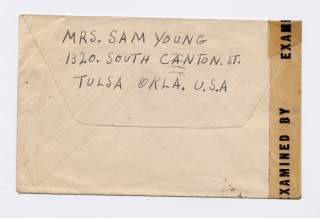 MRS. SAM YOUNG
1320. SOUTH CANTON. ST.
TULSA OKLA. U.S.A
EXAMINED BY
EXAMI